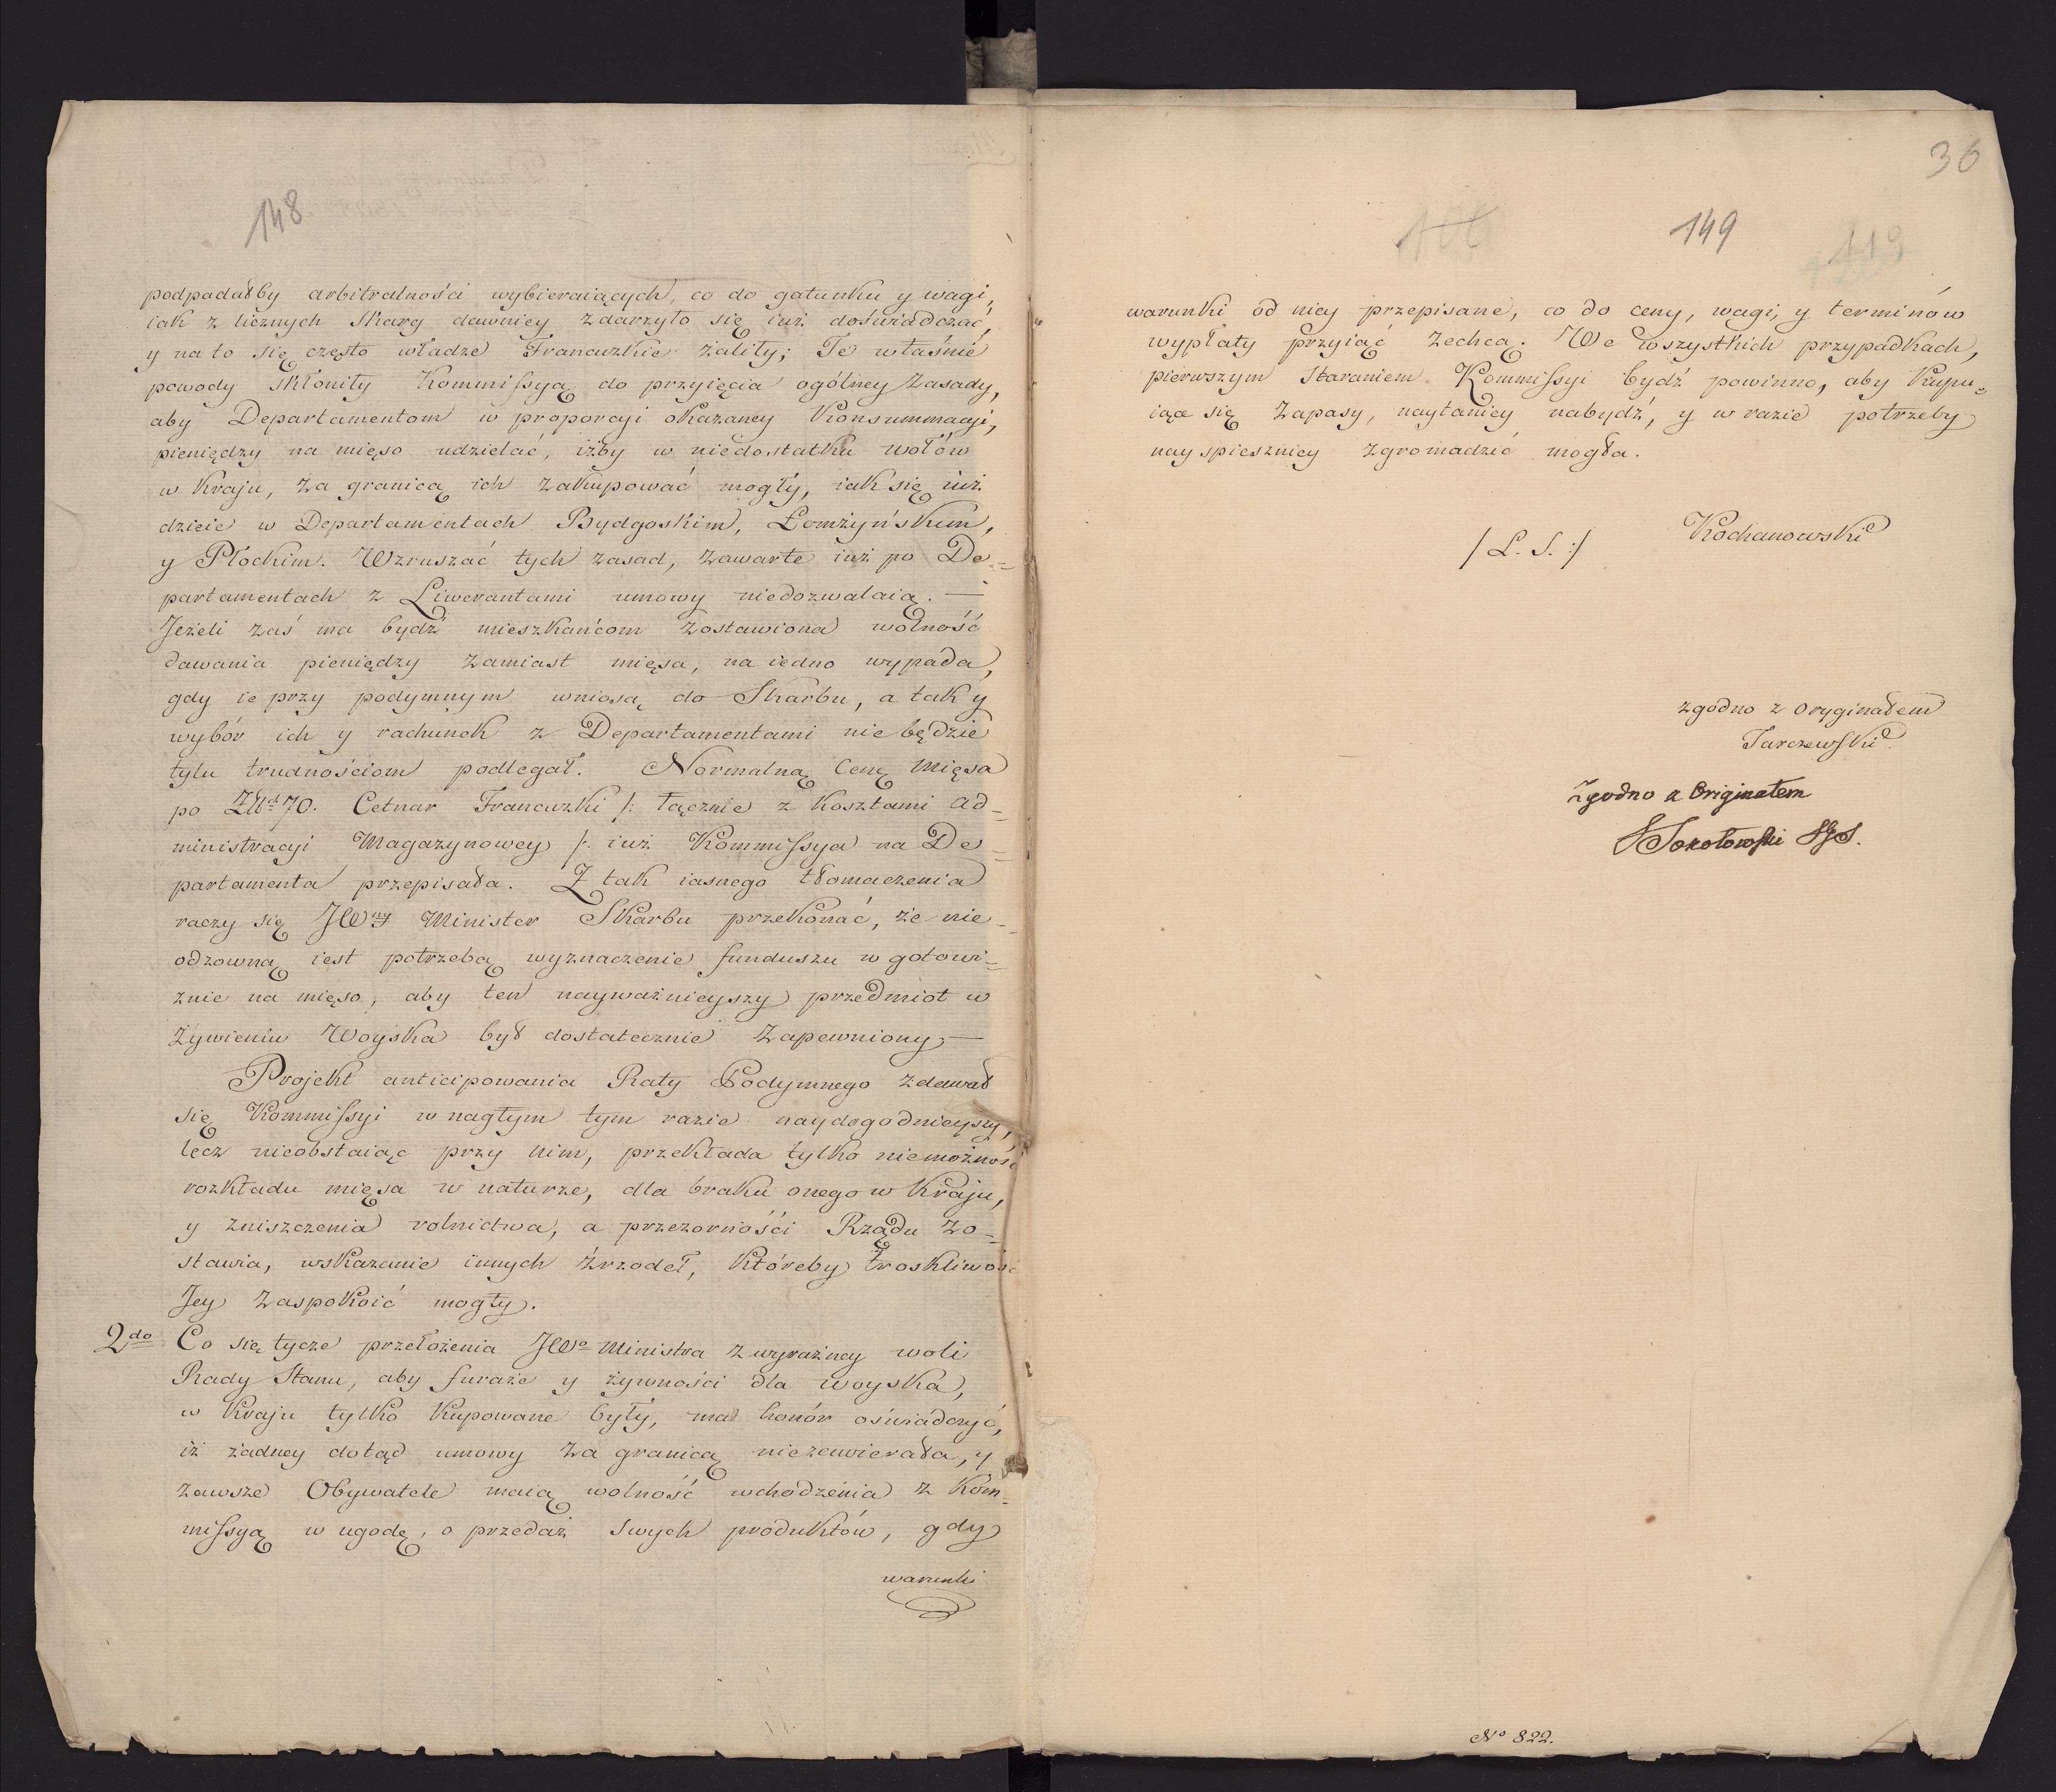 148
podpadałby arbitralności wybieraiących, co do gatunku y wagi,
iak z licznych skarg dawniey zdarzyło się iuż doświadczać,
y na to się często władze Francuzkie żaliły; Te właśnie
powody skłoniły Kommissyą do przyięcia ogólney zasady,
aby Departamentom w proporcyi okazaney Konsummacyi,
pieniędzy na mięso udzielać, iżby w niedostatku wołów
w Kraju, za granicą ich zakupować mogły, iak się iuż
dzieie w Departamentach Bydgoskim, Łomżyńskim,
y Płockim. Wzruszać tych zasad, zawarte iuż po De=
partamentach z Liwerantami umowy niedozwalaią. —
Jeżeli zaś ma bydź mieszkańcom zostawiona wolność
dawania pieniędzy zamiast mięsa, na iedno wypada,
gdy ie przy podymnym wniosą do Skarbu, a tak y
wybór ich y rachunek z Departamentami nie będzie
tylu trudnościom podlegał. Normalną Cenę Mięsa
po Zł 70. Cetnar Francuzki /: łącznie z kosztami ad=
ministracyi Magazynowey /: iuż Kommissya na De=
partamenta przepisała. Z tak iasnego tłomaczenia
raczy się JWny Minister Skarbu przekonać, że nie=
odzowną iest potrzebą wyznaczenie funduszu w gotowi=
znie na mięso, aby ten nayważnieyszy przedmiot w
żywieniu Woyska był dostatecznie zapewniony. —
Projekt anticipowania Raty Podymnego zdawał
się Kommissyi w nagłym tym razie naydogodnieyszy,
lecz nieobstaiąc przy nim, przekłada tylko niemożność
rozkładu mięsa w naturze, dla braku onego w Kraju,
y zniszczenia rolnictwa, a przezorności Rządu zo=
stawia, wskazanie innych źrzodeł, któreby troskliwość
Jey zaspokoić mogły.
2do Co się tycze przełożenia JWo Ministra z wyraźney woli
Rady Stanu, aby furaże y żywności dla woyska,
w Kraju tylko kupowane były, ma honór oświadczyć,
iż żadney dotąd umowy za granicą niezawierała, y
zawsze Obywatele maią wolność wchodzenia z Kom=
missyą w ugodę, o przedaż swych produktów, gdy
warunki
36
149
119
warunki od niey przepisane, co do ceny, wagi, y terminów
wypłaty przyiąć zechcą. We wszystkich przypadkach,
pierwszym staraniem Kommissyi bydź powinno, aby kupu=
iące się zapasy, naytaniey nabydź, y w razie potrzeby
nayspieszniey zgromadzić mogła.
/ L. S. :/ Kochanowski
zgodno z oryginałem
Tarczewski
Zgodno z Originałem
Sokołowski
No 822.